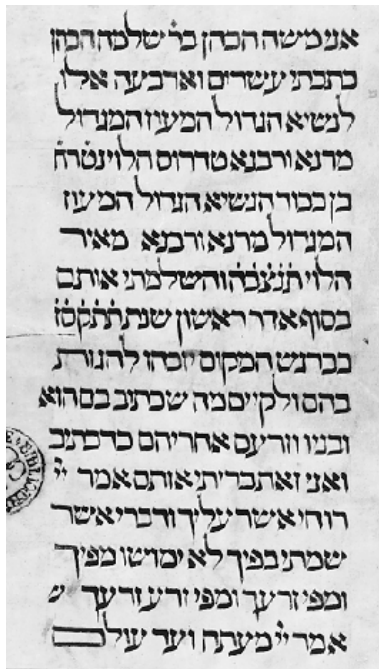 אני משה הכהן בר שלמה הכהן
כתבתי עשרים וארבעה אלו
לנשיא הגדול המעוז המגדול
מרנא ורבנא טדרוס הלוי נטרח
בן כבוד הנשיא הגדול המעוז
המגדול מרנא ורבנא מאיר
הלוי תנצבה והשלמתי אותם
בסוף אדר ראשון שנת תתקסז
בברגש המקום יזכהו להגות
בהם ולקיים מה שכתוב בם הוא
ובניו וזרעם אחריהם כדכתיב
ואני זאת בריתי אותם אמר יי
רוחי אשר עליך ודברי אשר
שמתי בפיך לא ימושו מפיך
ומפי זרעך ומפי זרע זרעך
אמר יי מעתה ועד עולם